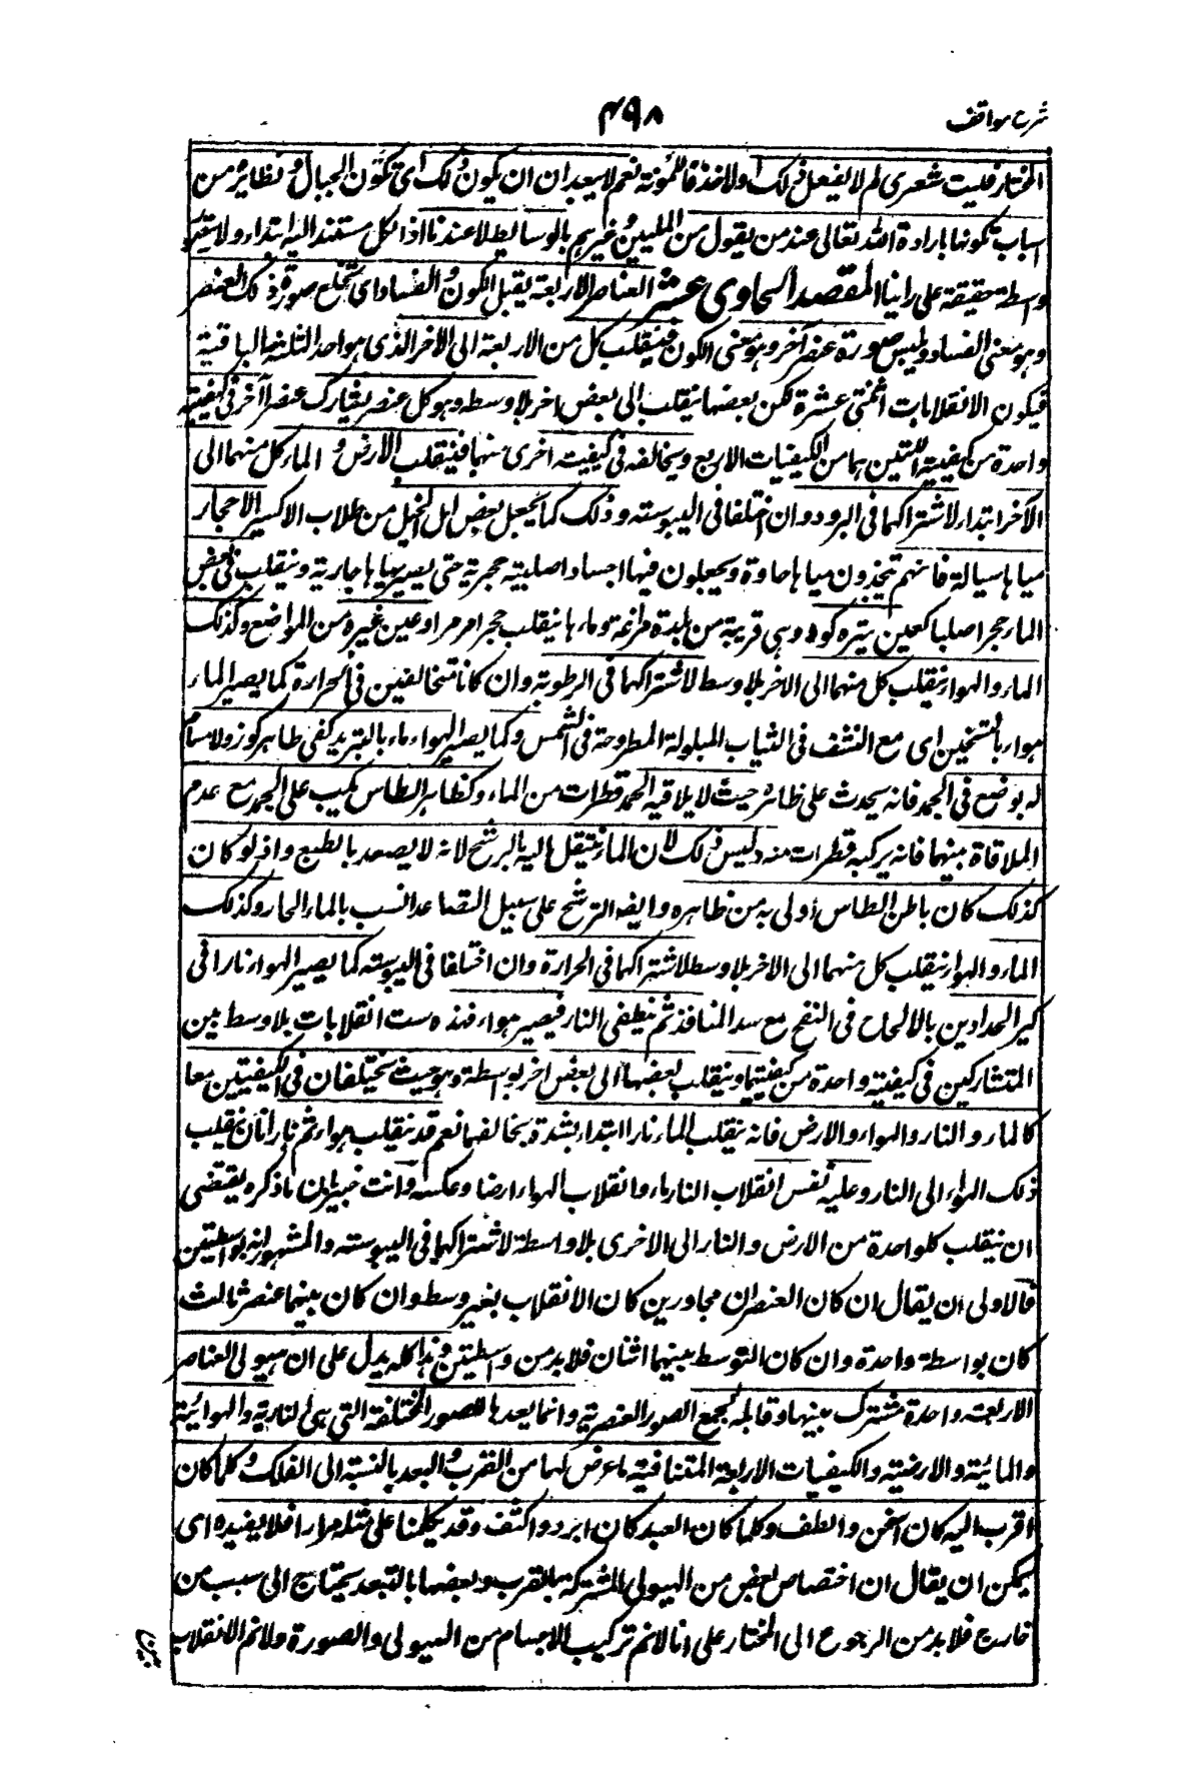 شرح مواقف
٤٩٨
المختار فليت شعري لم لا يفعل ذلك اولا حذفا للمؤنة نعم لا يبعد ان يكون ذلك اي تكون الجبال ونظائره من
اسباب تكونها بارادة الله تعالى عند من يقول من المليين وغيرهم بالوسائط لا عندنا اذ الكل مستند اليه ابتداء ولا
واسطة حقيقة على راينا المقصد الحاوي عشر العناصر الاربعة يقبل الكون والفساد اي تخلع صورة ذلك العنصر
وهو معنى الفساد ويلبس صورة عنصر آخر وهو معنى الكون فينقلب كل من الاربعة الى الآخر الذي هو احد الثلثة الباقية
فيكون الانقلابات اثنتي عشرة لكن بعضها ينقلب الى بعض آخر بلا وسط وهو كل عنصر يشارك عنصرا آخر في كيفية
واحدة من كيفيتيه اللتين هما من الكيفيات الاربع ويخالفه في كيفية اخرى منها فينقلب الارض والماء كل منهما الى
الآخر ابتداء لاشتراكهما في البرد وان اختلفا في اليبوسة وذلك كما يجعل بعض اهل الحيل من طلاب الاكسير الاحجار
مياها سيالة فانهم يتخذون مياها حادة ويحلون فيها اجسادا صلبة حجرية حتى يصير مياها جارية وينقلب في بعض
الماء حجرا صلبا كعين سيه كوه وهي قريبة من بلدة مراغة وماءها ينقلب حجرا مرمرا وعين غيره من المواضع وكذلك
الماء والهواء ينقلب كل منهما الى الآخر بلا وسط لاشتراكهما في الرطوبة وان كانا متخالفين في الحرارة كما يصير الماء
هواء بالتسخين اي مع النشف في الثياب المبلولة المطروحة في الشمس وكما يصير الهواء ماء بالتبريد كفي ظاهر كوز ولا مسام
له يوضع في الجمد فانه يحدث على ظاهره حيث لا يلاقيه الجمد قطرات من الماء وكظاهر الطاس يكب على الجمد مع عدم
الملاقاة بينهما فانه يركبه قطرات منه وليس ذلك لان الماء ينتقل اليه بالرشح لانه لا يصعد بالطبع واذ لو كان
كذلك كان باطن الطاس اولى به من ظاهره وايضا الترشح على سبيل التصاعد انسب بالماء الحار وكذلك
الماء والهواء ينقلب كل منهما الى الآخر بلا وسط لاشتراكهما في الحرارة وان اختلفا في اليبوسة كما يصير الهواء نارا في
كير الحدادين بالالحاح في النفخ مع سد المنافذ ثم ينطفي النار فيصير هواء فهذه ست انقلابات بلا وسط بين
المتشاركين في كيفية واحدة من كيفيتيهما وينقلب بعضها الى بعض آخر بواسطة وهو حيث يختلفان في الكيفيتين معا
كالماء والنار والهواء والارض فانه ينقلب الماء نارا ابتداء بشدة تخالفهما نعم قد ينقلب هواء ثم نارا بان ينقلب
ذلك الهواء الى النار وعليه نفس انقلاب النار ماء وانقلاب الهواء ارضا وعكسه وانت خبير بان ما ذكره يقتضي
ان ينقلب كل واحدة من الارض والنار الى الاخرى بلا واسطة لاشتراكهما في اليبوسة والمشهور انه بواسطتين
فالاولى ان يقال ان كان العنصران مجاورين كان الانقلاب بغير وسط وان كان بينهما عنصر ثالث
كان بواسطة واحدة وان كان المتوسط بينهما اثنان فلا بد من واسطتين وهذا كله يدل على ان هيولى العناصر
الاربعة واحدة مشترك بينها وقابلة لجميع الصور العنصرية وانما يعدها للصور المختلفة التي هي النارية والهوائية
والمائية والارضية والكيفيات الاربعة المتنافية ما عرض لها من القرب والبعد بالنسبة الى الفلك وكلما كان
اقرب اليه كان اسخن والطف وكلما كان ابعد كان ابرد واكثف وقد تكلمنا على مثله مرارا فلا يفيده اي
يمكن ان يقال ان اختصاص بعض من الهيولى المشتركة بالقرب وبعضها بالبعد يحتاج الى سبب من
خارج فلا بد من الرجوع الى المختار على انا لا نم تركيب الاجسام من الهيولى والصورة ولا نم الانقلاب